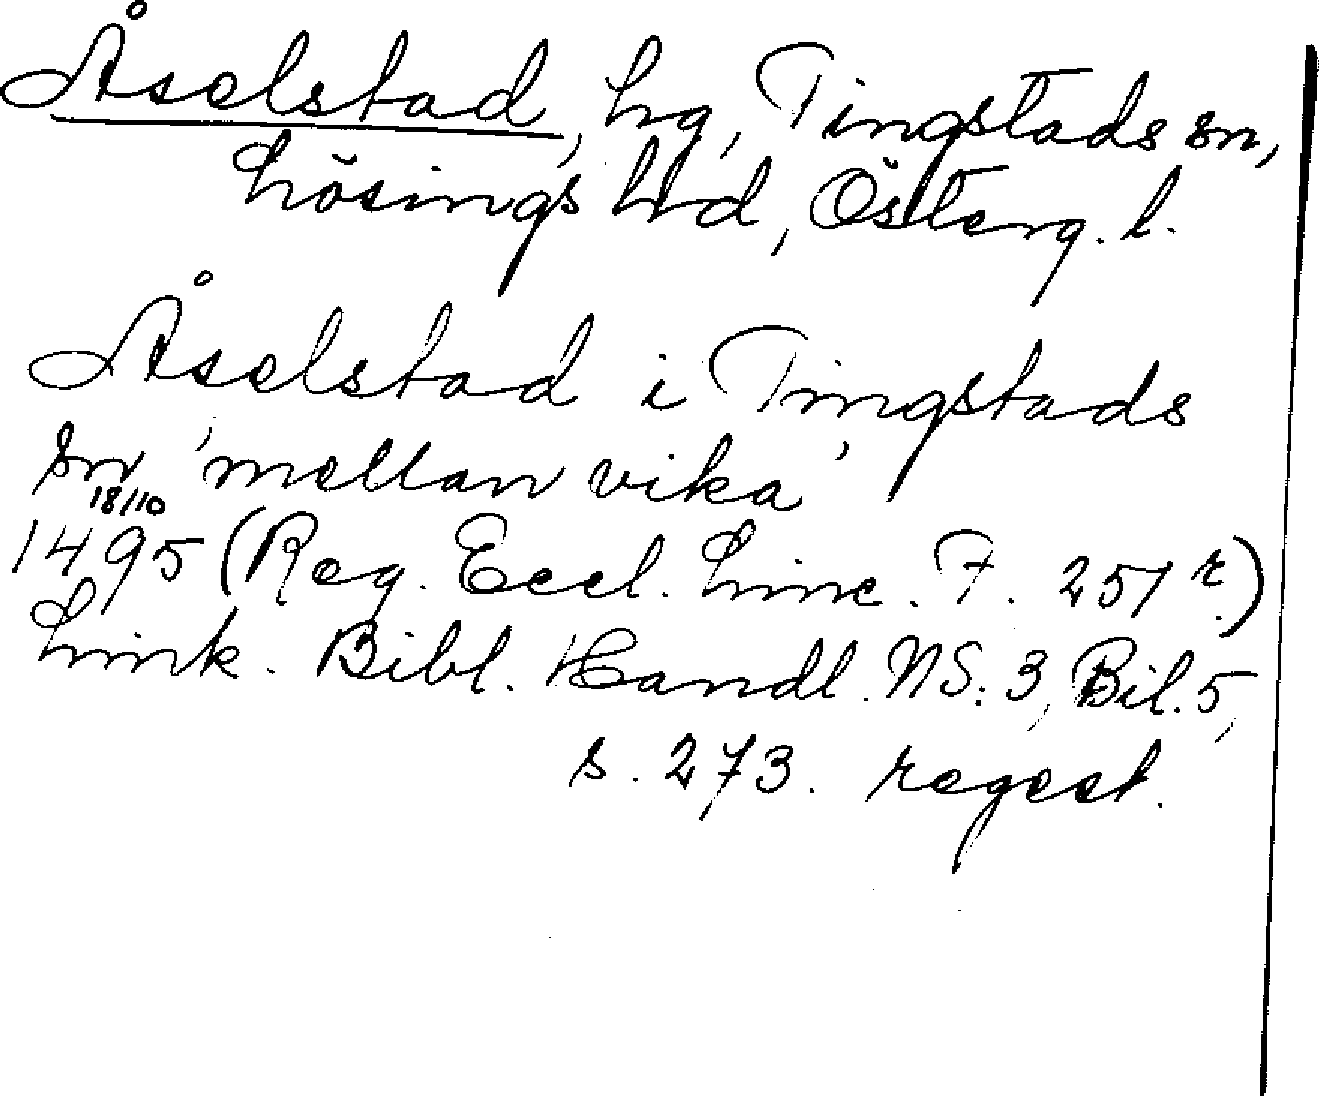 Åselstad, hg, Tingstads sn,
Lösings hd, Österg. l.
Åselstad i Tingstads
sn 'mellan vika'
18/10
1495 (Reg. Eccl. Linc. F. 251 r.)
Link. Bibl. Handl. NS. 3, Bil. 5,
s. 273. regest.